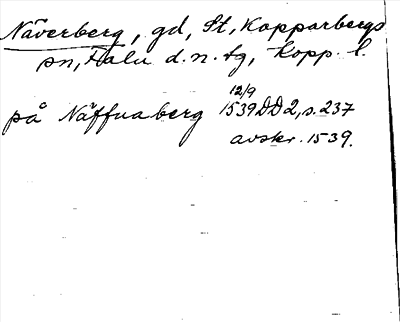 Näverberg, gd, St, Kopparbergs
sn, Falu d.n. tg, Kopp. l.
12/9
på Näffuaberg 1539 DD2, s. 237
avskr. 1539.